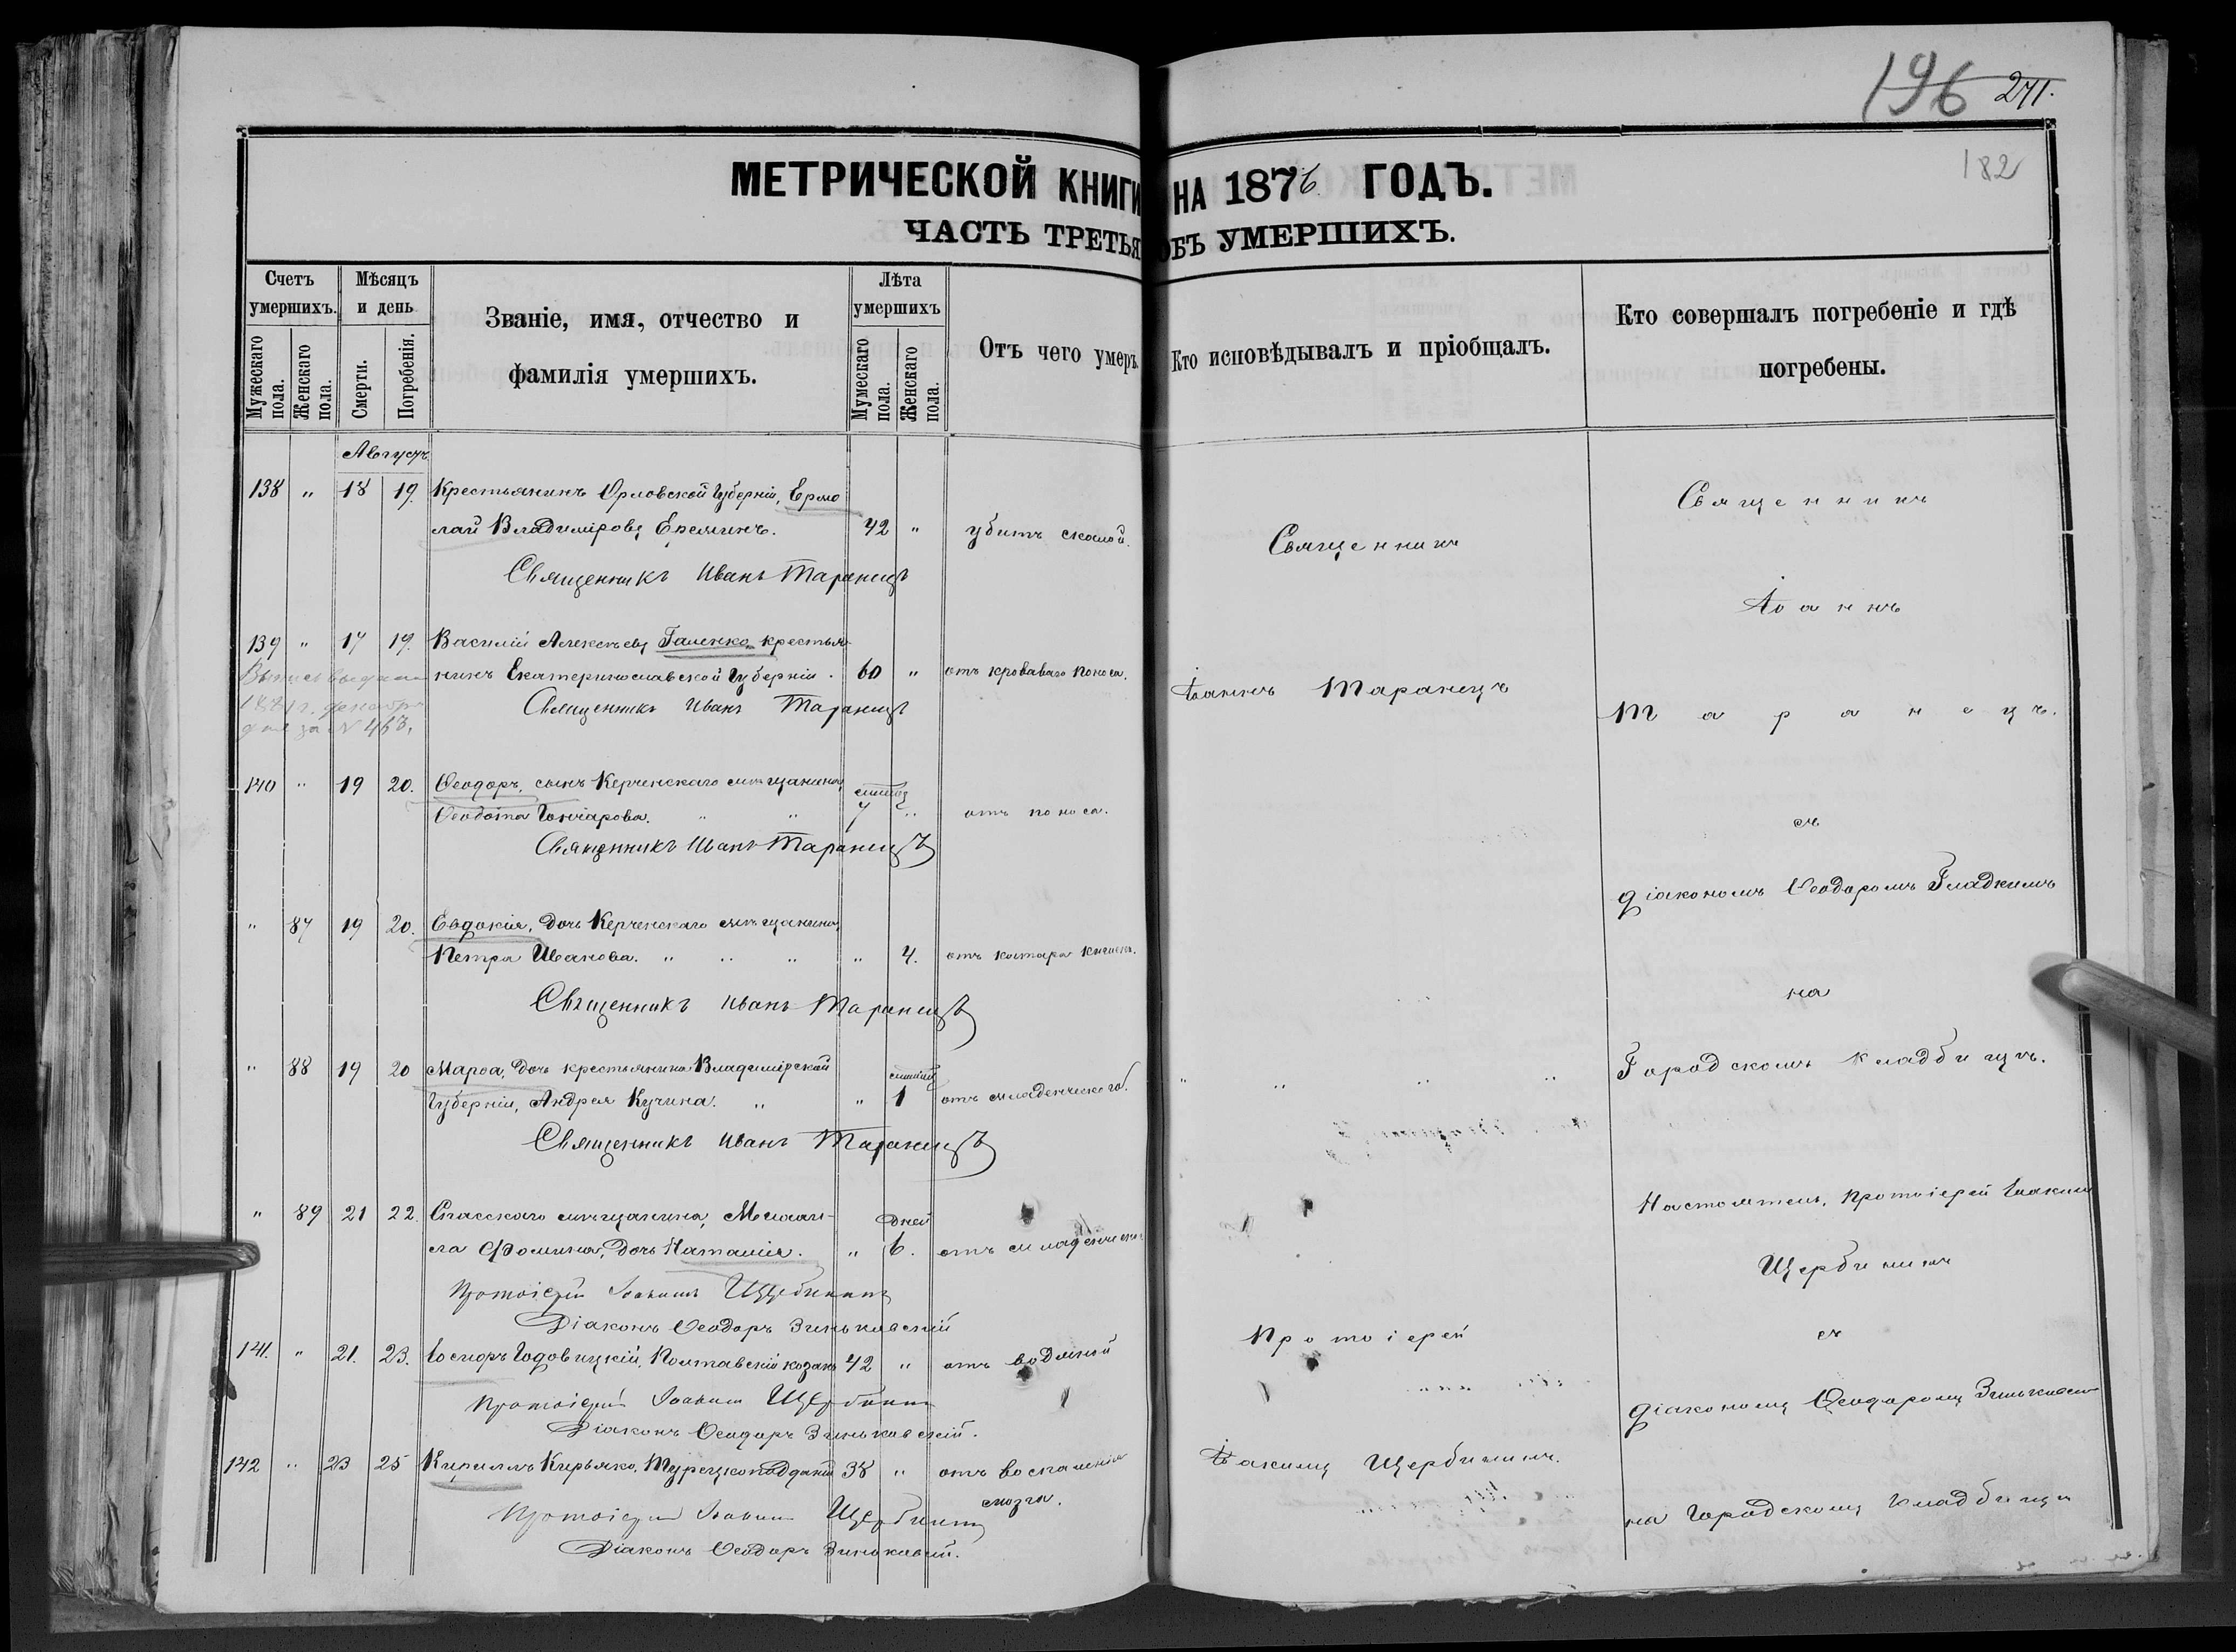 196 271.
182
МЕТРИЧЕСКОЙ КНИГИ НА 1876 ГОДЪ.
ЧАСТЬ ТРЕТЬЯ ОБЪ УМЕРШИХЪ.
Счетъ умершихъ.
Мужескаго пола.
Женскаго пола.
Мѣсяцъ и день
Смерти.
Погребенія.
Званіе, имя, отчество и
фамилія умершихъ.
Лѣта умершихъ
Мумескаго пола.
Женскаго пола.
Отъ чего умеръ.
Кто исповѣдывалъ и пріобщалъ.
Кто совершалъ погребеніе и гдѣ
погребены.
Августъ
138 " 18 19. Крестьянинъ Орловской Губерніи, Ермо
лай Владиміровъ Еремкинъ. 42 " убитъ скалой.
Священникъ Иванъ Таранецъ
139 " 17 19. Василій Алексѣевъ Галенко, крестья-
нинъ Екатеринославской Губерніи. 60 " отъ кроваваго поноса.
Священникъ Иванъ Таранецъ
Выпись выдана
1881 г. декабря
дня за № 463.
140 " 19 20. Ѳеодоръ, сынъ Керченскаго мѣщанина,
Ѳеодота Гончарова. " " 7 " отъ поноса.
Священникъ Иванъ Таранецъ
" 87 19 20. Евдокія, дочь Керченскаго мѣщанина,
Петра Иванова. " " " " 4. отъ катара кишекъ.
Священникъ Иванъ Таранецъ
" 88 19 20 Марѳа, дочь крестьянина Владимірской
Губерніи, Андрея Кучина. " " 1 отъ младенческаго.
Священникъ Иванъ Таранецъ
" 89 21 22. Спасскаго мѣщанина,
Фомина, дочь Наталія. " дней 6. отъ младенческ
Протоіерей Іоакимъ Щербининъ
Діаконъ Ѳеодоръ Зиньковскій
141. " 21. 23. Іосифъ Годовицкій, Полтавскій козакъ 42 " отъ водяной
Протоіерей Іоакимъ Щербининъ
Діаконъ Ѳеодоръ Зиньковскій.
142 " 23 25 Кириллъ Кирьяко, Турецкоподданый 38 " отъ воспаленія
мозга.
Протоіерей Іоакимъ Щербининъ
Діаконъ Ѳеодоръ Зиньковскій.
Священникъ
Іоаннъ Таранецъ
" " " "
Протоіерей
Іоакимъ Щербининъ.
Священникъ
Іоаннъ
Таранецъ.
съ
діакономъ Ѳеодоромъ Гладкимъ
на
Городскомъ кладбищѣ.
Настоятель, протоіерей Іоакимъ
Щербининъ
съ
діакономъ Ѳеодоромъ Зиньковск
на Городскомъ кладбищѣ